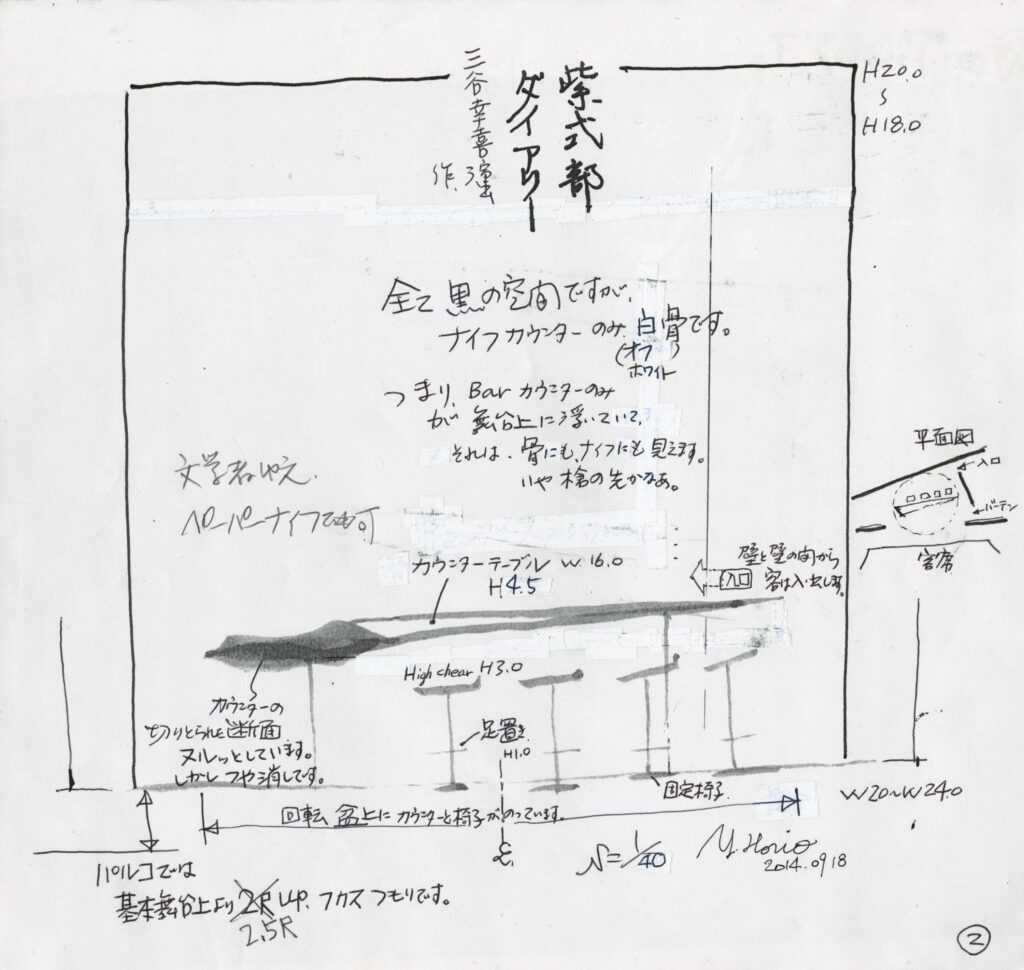 紫式部
ダイアリー
三谷幸喜 作.演出
H20.0
〜
H18.0
全て黒の空間ですが、
ナイフカウンターのみ、白骨です。
(オフ
ホワイト)
つまり、Barカウンターのみ
が舞台上に浮いていて、
それは、骨にも、ナイフにも見えます。
いや槍の先かなあ。
文学者ゆえ、
ペーパーナイフでも可
平面図
入口
バーテン
客席
カウンターテーブル W16.0
H4.5
入口
壁と壁の間から
客は入・出します。
High chear H3.0
カウンターの
切りとられた断面
ヌルッとしています。
しかしつや消しです。
足置き
H1.0
固定椅子
回転盆上にカウンターと椅子がのっています。
W20〜W24.0
パルコでは
基本舞台上より 2R UP、フカスつもりです。
2.5R
S=1/40
M.Horio
2014.0918
2